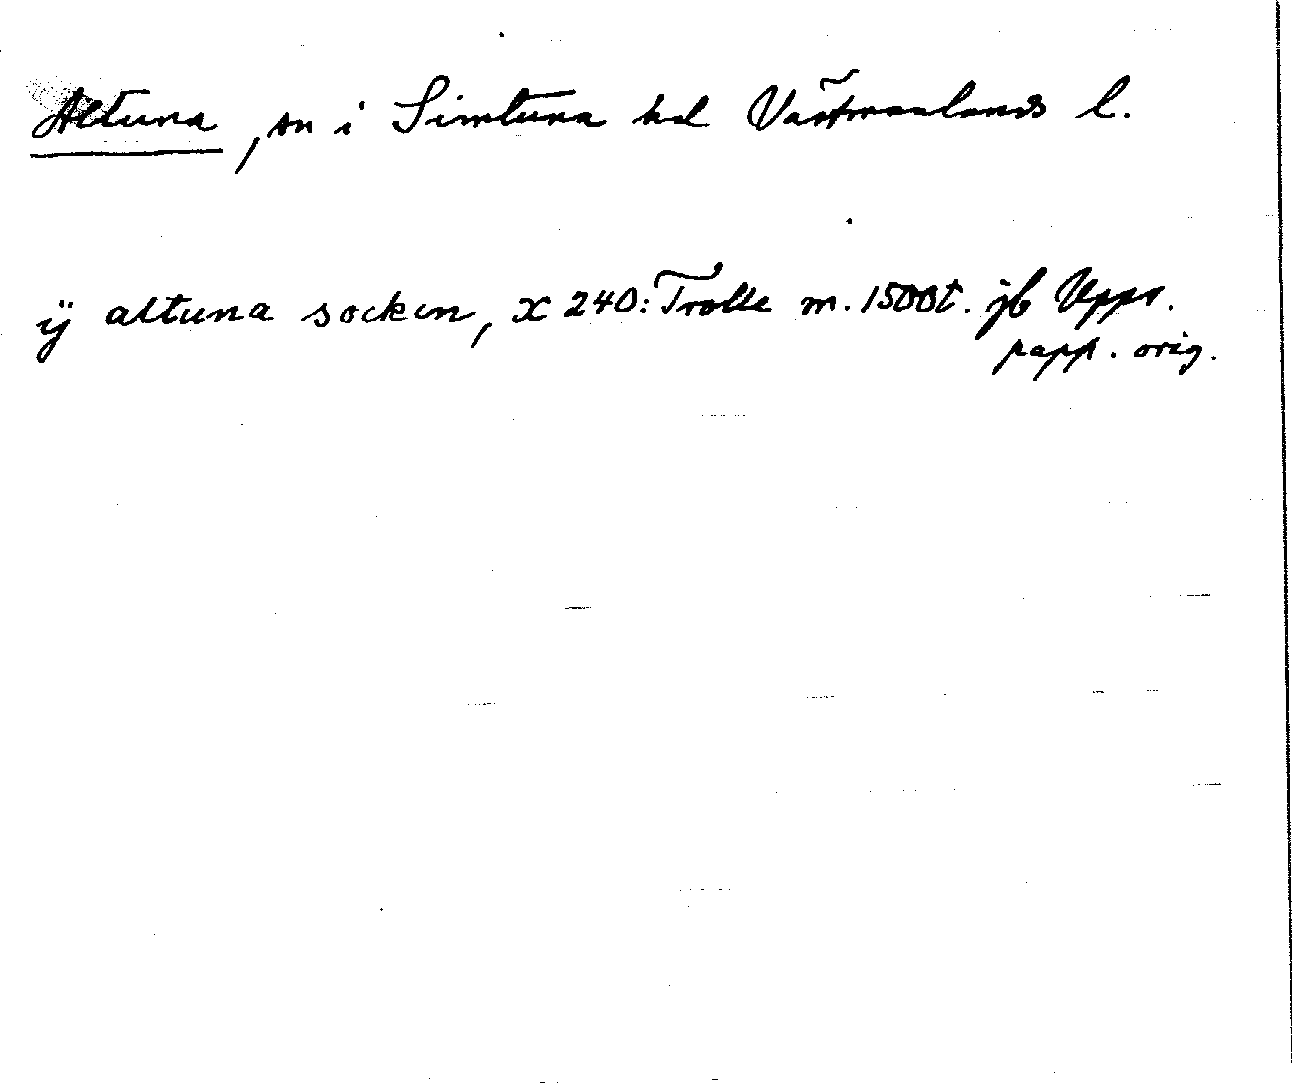 Altuna, sn i Simtuna hd Västmanlands l.
ÿ altuna socken, x 240: Trolle m. 1500t. jb Upps.
papp. orig.